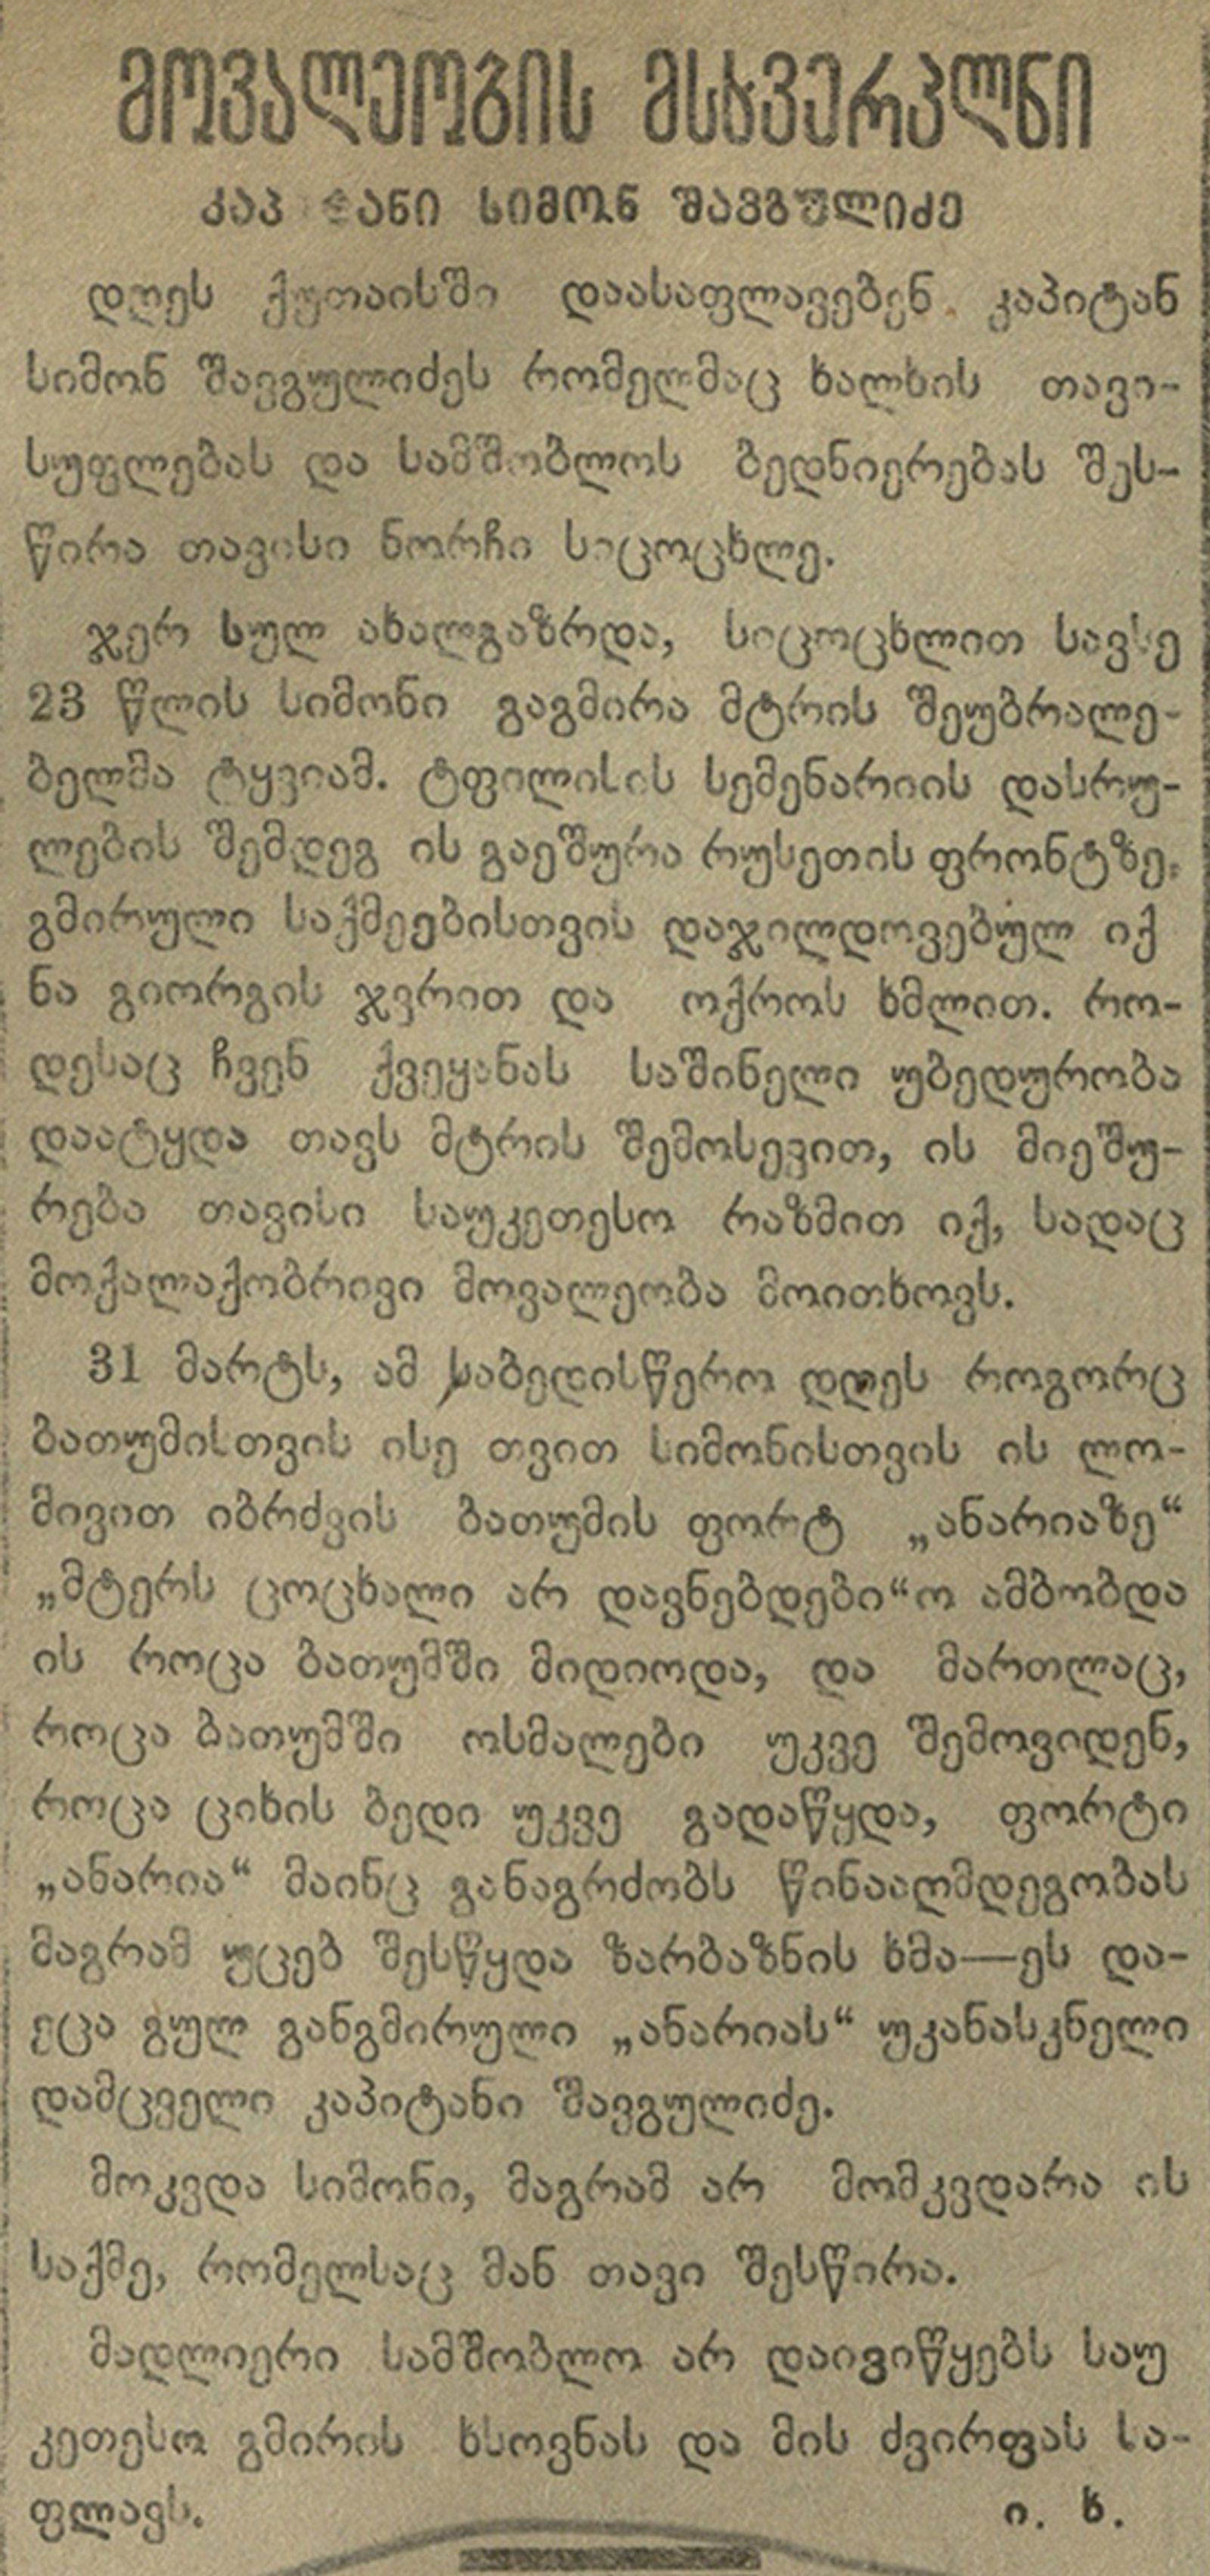 მოვალეობის მსხვერპლნი
კაპიტანი სიმონ შავგულიძე
დღეს ქუთაისში დაასაფლავებენ კაპიტან
სიმონ შავგულიძეს რომელმაც ხალხის თავი-
სუფლებას და სამშობლოს ბედნიერებას შეს-
წირა თავისი ნორჩი სიცოცხლე.
ჯერ სულ ახალგაზრდა, სიცოცხლით სავსე
23 წლის სიმონი გაგმირა მტრის შეუბრალე-
ბელმა ტყვიამ. ტფილისის სემენარიის დასრუ-
ლების შემდეგ ის გაეშურა რუსეთის ფრონტზე.
გმირული საქმეებისთვის დაჯილდოვებულ იქ
ნა გიორგის ჯვრით და ოქროს ხმლით. რო-
დესაც ჩვენ ქვეყანას საშინელი უბედურობა
დაატყდა თავს მტრის შემოსევით, ის მიეშუ-
რება თავისი საუკეთესო რაზმით იქ, სადაც
მოქალაქობრივი მოვალეობა მოითხოვს.
31 მარტს, ამ საბედისწერო დღეს როგორც
ბათუმისთვის ისე თვით სიმონისთვის ის ლო-
მივით იბრძვის ბათუმის ფორტ „ანარიაზე“
„მტერს ცოცხალი არ დავნებდები“ო ამბობდა
ის როცა ბათუმში მიდიოდა, და მართლაც,
როცა ბათუმში ოსმალები უკვე შემოვიდენ,
როცა ციხის ბედი უკვე გადაწყდა, ფორტი
„ანარია“ მაინც განაგრძობს წინააღმდეგობას
მაგრამ უცებ შესწყდა ზარბაზნის ხმა—ეს და-
ეცა გულ განგმირული „ანარიას“ უკანასკნელი
დამცველი კაპიტანი შავგულიძე.
მოკვდა სიმონი, მაგრამ არ მომკვდარა ის
საქმე, რომელსაც მან თავი შესწირა.
მადლიერი სამშობლო არ დაივიწყებს საუ
კეთესო გმირის ხსოვნას და მის ძვირფას სა-
ფლავს. ი. ხ.